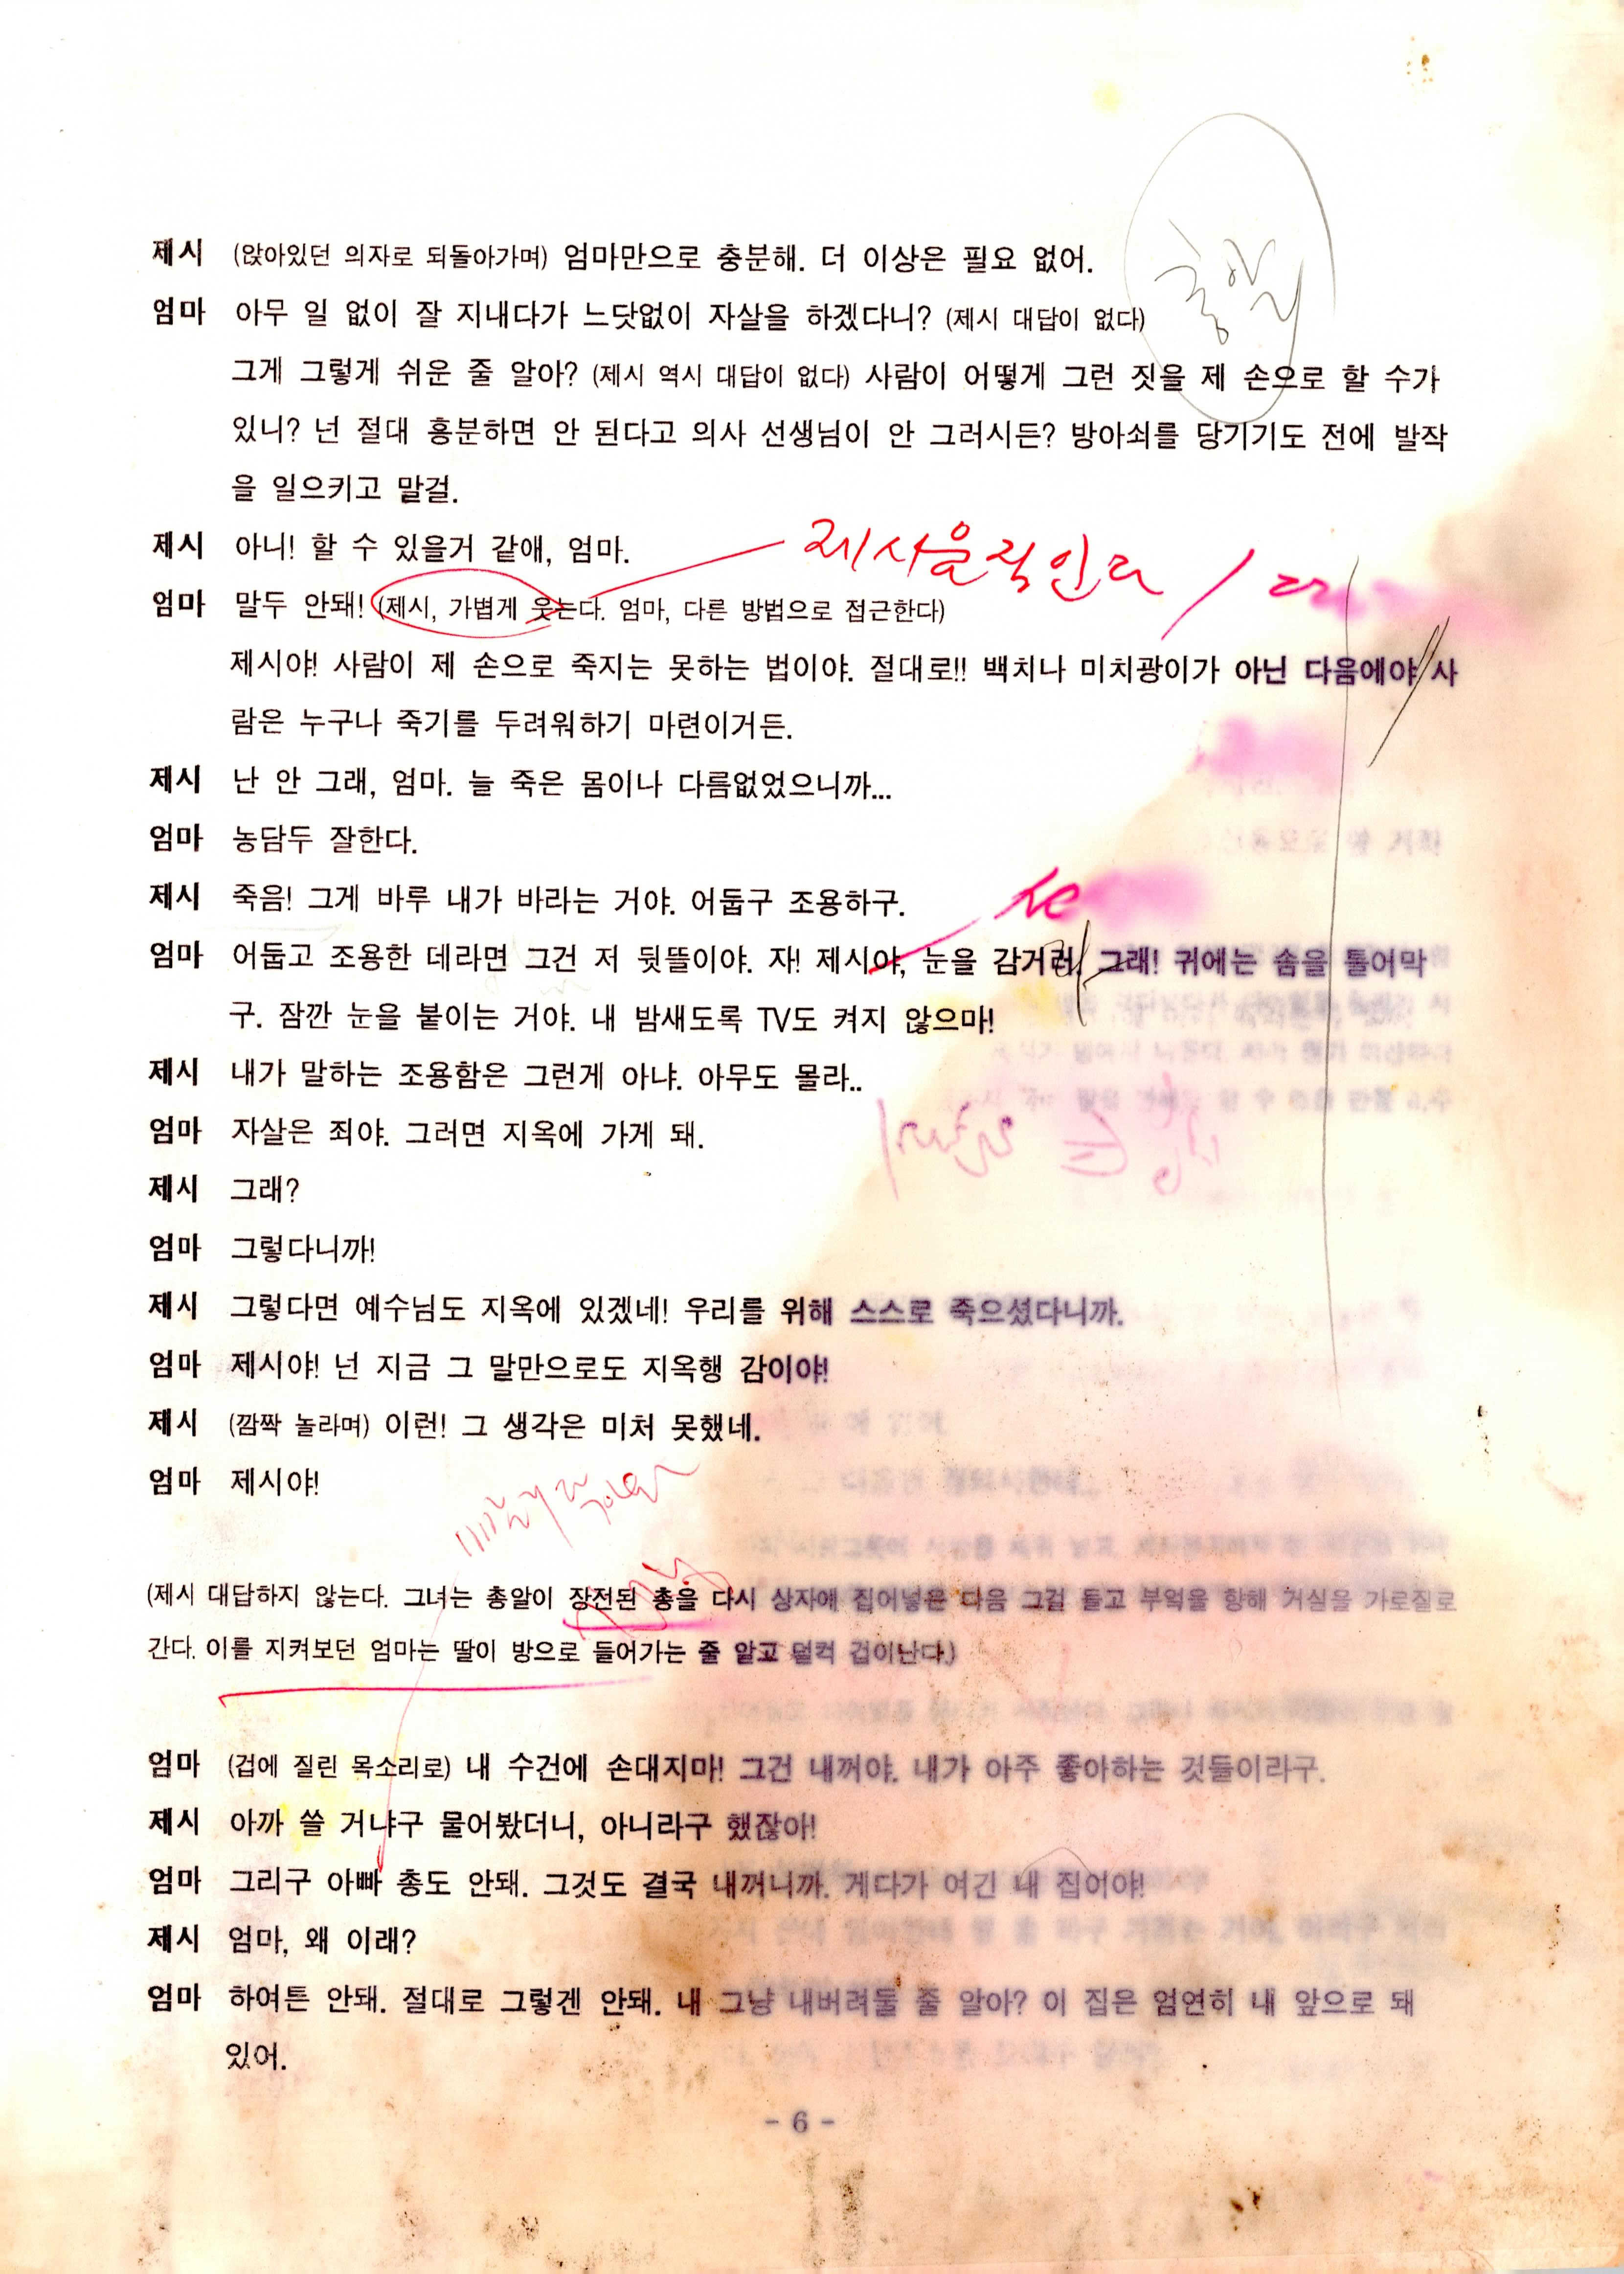 총알
제시 (앉아있던 의자로 되돌아가며) 엄마만으로 충분해. 더 이상은 필요 없어.
엄마 아무 일 없이 잘 지내다가 느닷없이 자살을 하겠다니? (제시 대답이 없다)
그게 그렇게 쉬운 줄 알아? (제시 역시 대답이 없다) 사람이 어떻게 그런 짓을 제 손으로 할 수가
있니? 넌 절대 흥분하면 안 된다고 의사 선생님이 안 그러시든? 방아쇠를 당기기도 전에 발작
을 일으키고 말걸.
제시 아니! 할 수 있을거 같애, 엄마.
엄마 말두 안돼! (제시, 가볍게 웃는다. 엄마, 다른 방법으로 접근한다)
제시야! 사람이 제 손으로 죽지는 못하는 법이야. 절대로!! 백치나 미치광이가 아닌 다음에야 사
람은 누구나 죽기를 두려워하기 마련이거든.
제시 난 안 그래, 엄마. 늘 죽은 몸이나 다름없었으니까...
엄마 농담두 잘한다.
제시 죽음! 그게 바루 내가 바라는 거야. 어둡구 조용하구.
엄마 어둡고 조용한 데라면 그건 저 뒷뜰이야. 자! 제시야, 눈을 감거라. 그래! 귀에는 솜을 틀어막
구. 잠깐 눈을 붙이는 거야. 내 밤새도록 TV도 켜지 않으마!
제시 내가 말하는 조용함은 그런게 아냐. 아무도 몰라..
엄마 자살은 죄야. 그러면 지옥에 가게 돼.
제시 그래?
엄마 그렇다니까!
제시 그렇다면 예수님도 지옥에 있겠네! 우리를 위해 스스로 죽으셨다니까.
엄마 제시야! 넌 지금 그 말만으로도 지옥행 감이야!
제시 (깜짝 놀라며) 이런! 그 생각은 미처 못했네.
엄마 제시야!
(제시 대답하지 않는다. 그녀는 총알이 장전된 총을 다시 상자에 집어넣은 다음 그걸 들고 부엌을 향해 거실을 가로질로
간다. 이를 지켜보던 엄마는 딸이 방으로 들어가는 줄 알고 덜컥 겁이난다.)
엄마 (겁에 질린 목소리로) 내 수건에 손대지마! 그건 내꺼야. 내가 아주 좋아하는 것들이라구.
제시 아까 쓸 거냐구 물어봤더니, 아니라구 했잖아!
엄마 그리구 아빠 총도 안돼. 그것도 결국 내꺼니까. 게다가 여긴 내 집이야!
제시 엄마, 왜 이래?
엄마 하여튼 안돼. 절대로 그렇겐 안돼. 내 그냥 내버려둘 줄 알아? 이 집은 엄연히 내 앞으로 돼
있어.
- 6 -